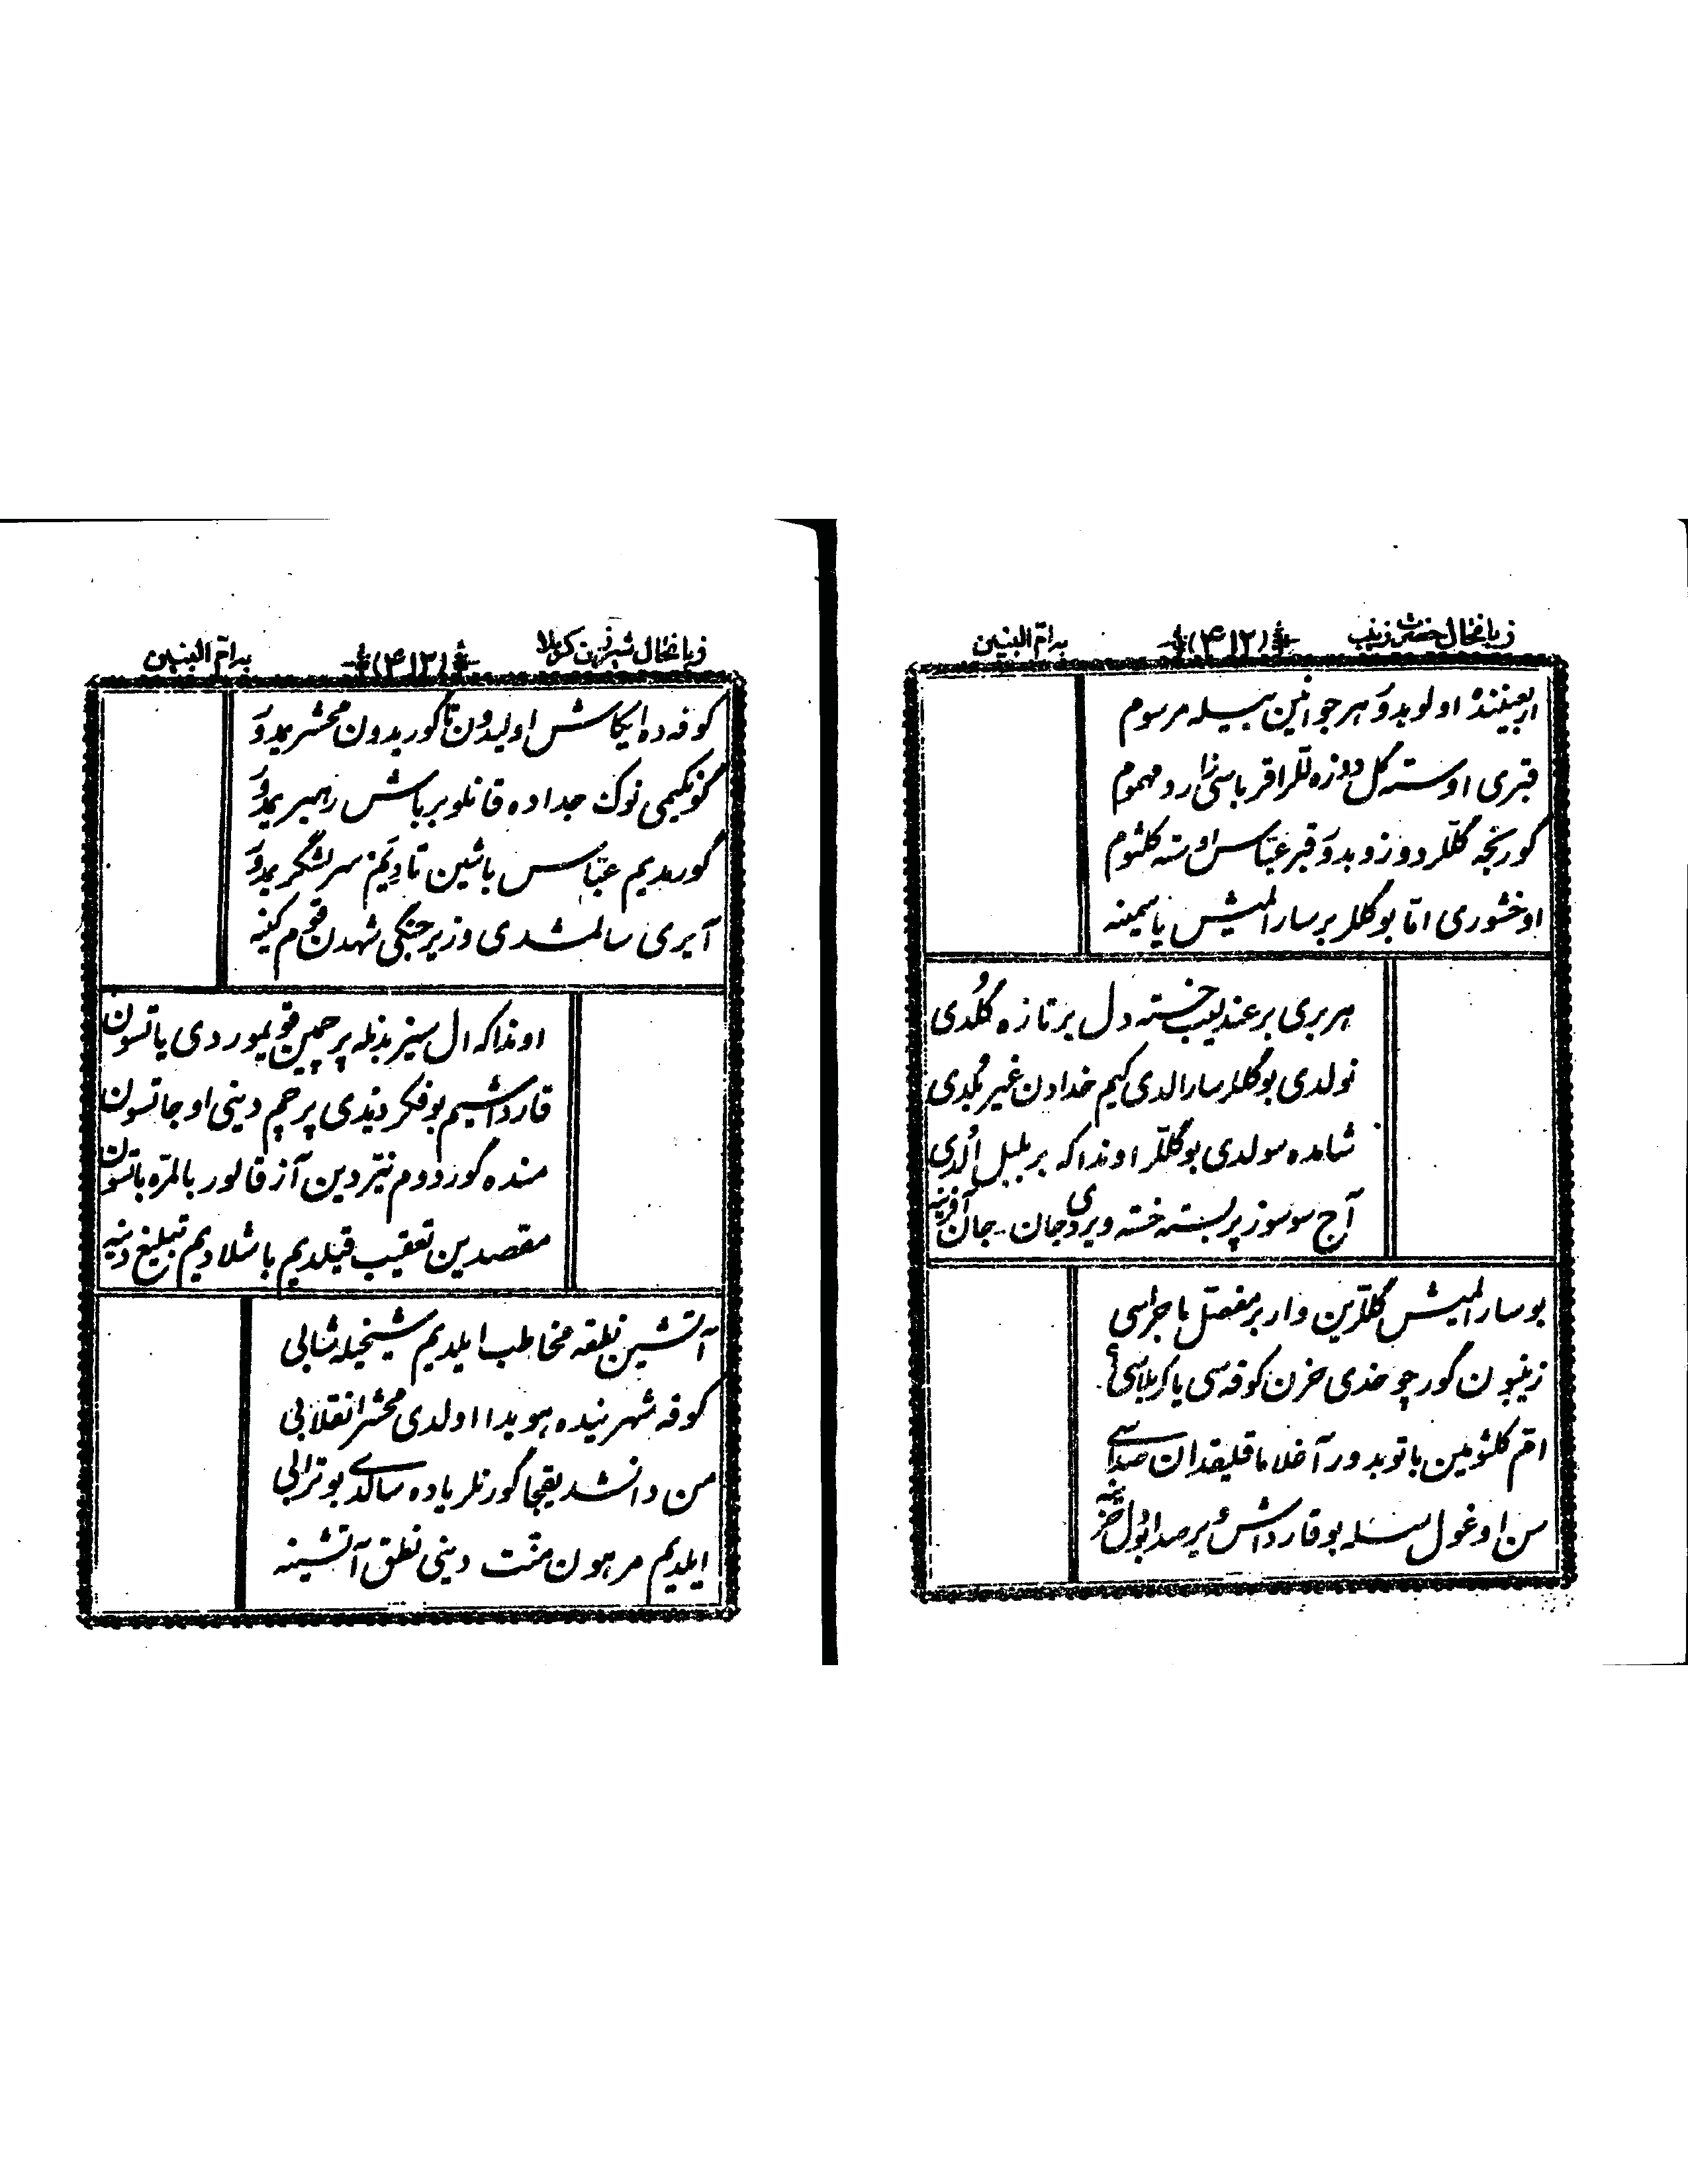 زبانحال حضرت زینب (۴۱۲) به ام البنین
اربعیننده اولوبدو هر جوانین بیله مرسوم
قبری اوسته گل دوزه للر اقرباسی زار و مهموم
گورنجه گللر دوزوبدو قبر عباس اوسته کلثوم
اوخشوری امّا بو گللر بر سارالمیش یاسمینه
هربری بر عندلیب خسته دل بر تازه گلدی
نولدی بو گللر سارالدی کیم خدادن غیر بُلدی
شامده سولدی بو گللر اونداکه بر بلبل اُلدی
آج سوسوز پر بسته خسته ویردی جان جان آفرینه
بو سارالمیش گللرین وار بر مفصل ماجراسی
زینبون گور چوخدی حزن کوفه سی یا کربلاسی
ام کلثومین باتوبدور آغلاماقلیقدان صداسی
سن اوغول سسله بو قارداش
زبانحال شیرزن کربلا (۴۱۳) به ام البنین
کوفه ده ایکاش اولیدون تا گوریدون محشریمدو
گونکیمی نوک جداده قانلو بر باش رهبریمدو
گوردیم عباس باشین تا دیدیم سر لشگریمدو
آیری سالمشدی وزیر جنگی شهدن قوم کینه
اونداکه ال سیز بدنله پرچمین قویموردی یاتسون
قارداشیم بو فکرد‌یدی پرچم دینی اوجاتسون
منده گوردوم نیّر دین آز قالور بالمرّه باتسون
مقصدین تعقیب قیلدیم باشلادیم تبلیغ دینه
آتشین نطقه مخاطب ایلدیم شیخیله شابی
کوفه شهرینده هویدا اولدی محشر انقلابی
من دانشدیقجا گورنلر یاده سالدی بوترابی
ایلدیم مرهون منّت دینی نطق آتشینه